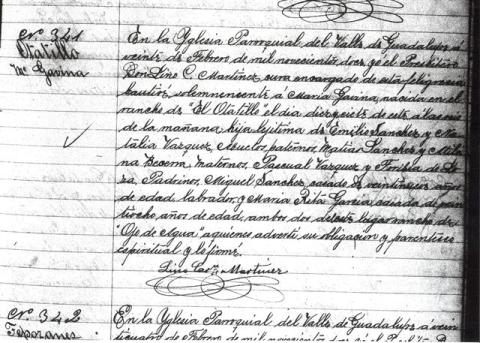 No 341
Otatillo
Ma Gavina
En la Yglesia Parroquial del Valle de Guadalupe á
veinte de Febrero de mil novecientos doce, yo el Presbítero
Don Lino C. Martinez, cura encargado de esta feligresía
bautisé solemnemente á Maria Gavina, nacida en el
rancho de "El Otatillo" el dia diez y siete de este á las seis
de la mañana, hija legítima de Emilio Sanchez y Na-
talia Vazquez. Abuelos paternos, Matias Sanchez y
Becerra, maternos, Pascual Vazquez y de
Padrinos, Miguel Sanchez casado de veintiseis años
de edad, labrador, y Maria Rita Garcia casada de vein-
tiocho años de edad, ambos dos de este lugar rancho de
"Ojo de Agua" á quienes advertí su obligacion y parentesco
espiritual y lo firmé.
Lino C. Martinez
No 342
Teporanes
En la Yglesia Parroquial del Valle de Guadalupe á vein-
ticuatro de Febrero de mil novecientos doce, yo el Presbítero